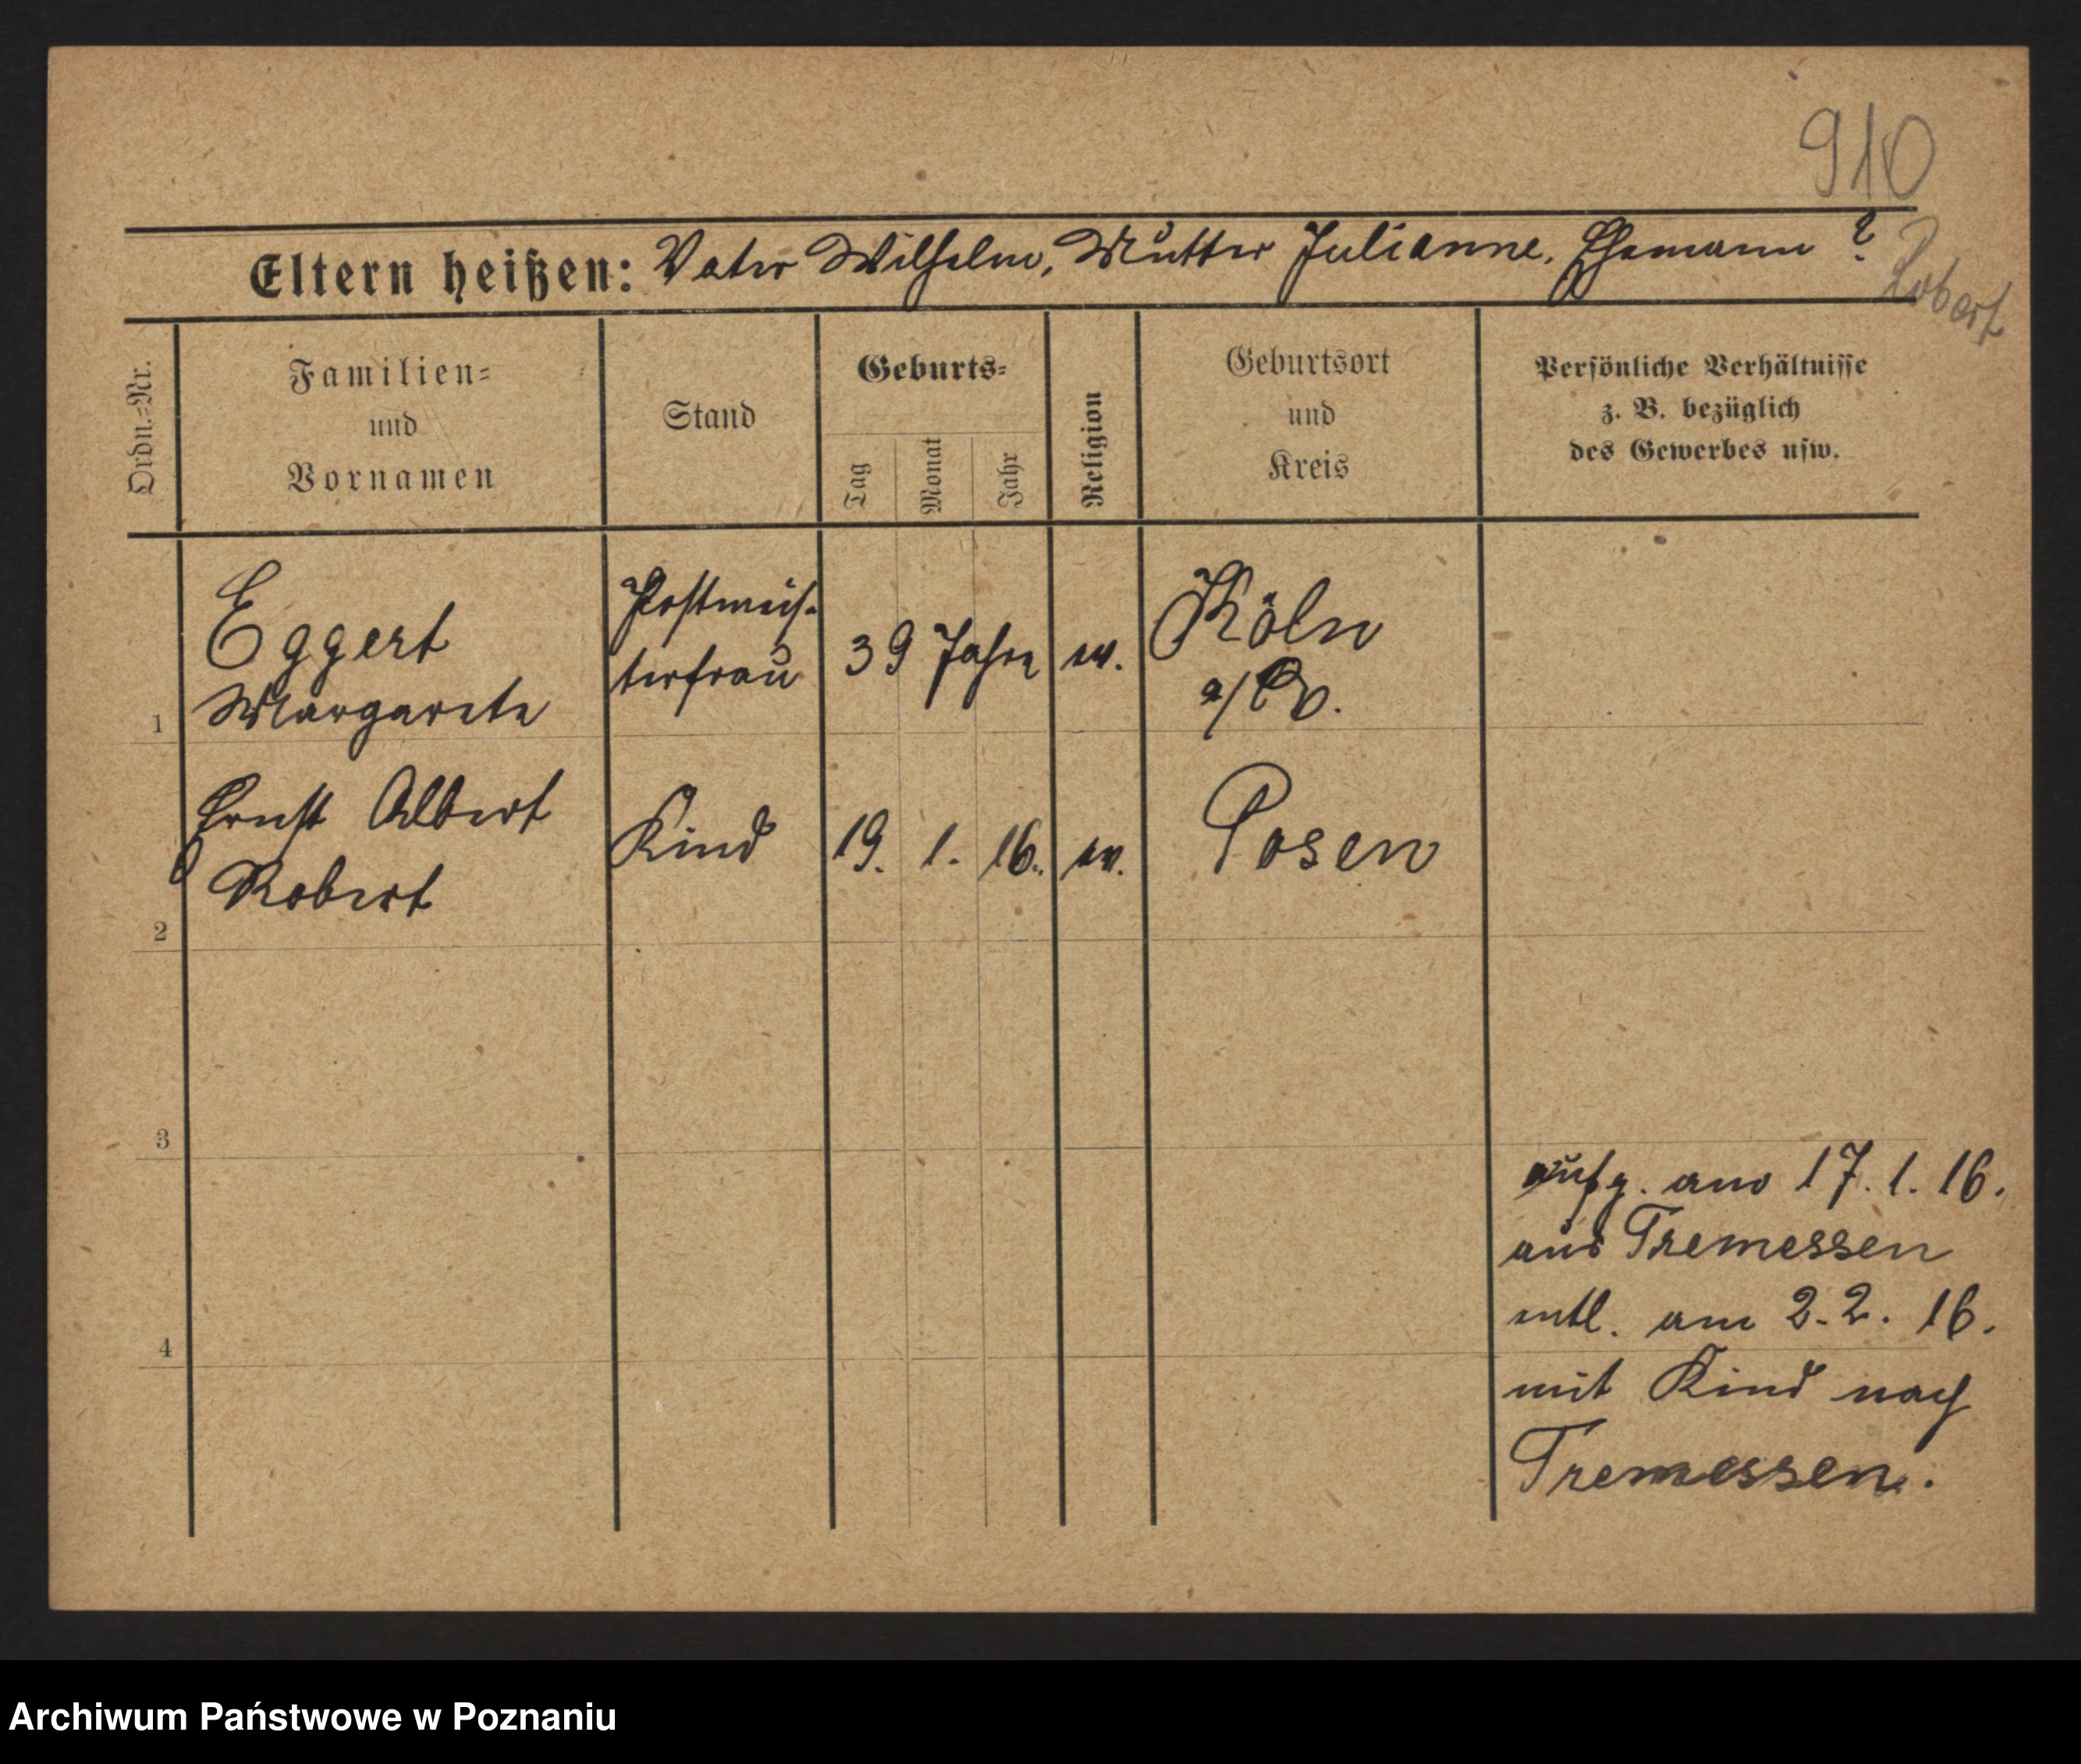 910
Eltern heißen: Vater Wilhelm, Mutter Julianne, Ehemann ?
Robert
Ordn.-Nr.
Familien-
und
Vornamen
Stand
Geburts-
Tag
Monat
Jahr
Religion
Geburtsort
und
Kreis
Persönliche Verhältnisse
z. B. bezüglich
des Gewerbes usw.
1
Eggert
Margarete
Postmeis-
terfrau
39 Jahre
ev.
Köln
2
Ernst Albert
Robert
Kind
19. 1. 16.
ev.
Posen
3
4
aufg. am 17. 1. 16.
aus Tremessen
entl. am 2. 2. 16.
mit Kind nach
Tremessen.
Archiwum Państwowe w Poznaniu